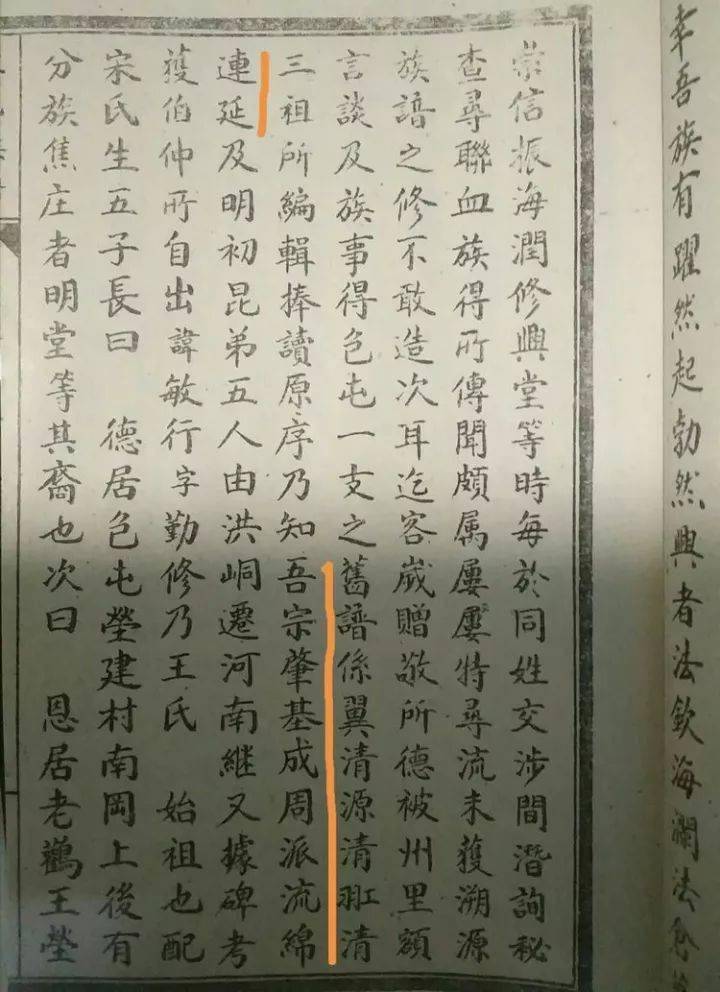 幸吾族有躍然起勃然興者法欽海瀾法
崇信振海潤修興堂等時每於同姓交涉間潛詢秘
查尋聯血族得所傳聞頗属屢屢特尋流未獲溯源
族譜之修不敢造次耳迄客嵗贈敬所德被州里額
言談及族事得色屯一支之舊譜係翼清源清羾清
三祖所編輯捧讀原序乃知吾宗肇基成周派流綿
連延及明初昆弟五人由洪峒遷河南継又據碑考
獲伯仲所自出諱敏行字勤修乃王氏 始祖也配
宋氏生五子長曰 德居色屯塋建村南岡上後有
分族焦庄者明堂等其裔也次曰 恩居老鸛王塋